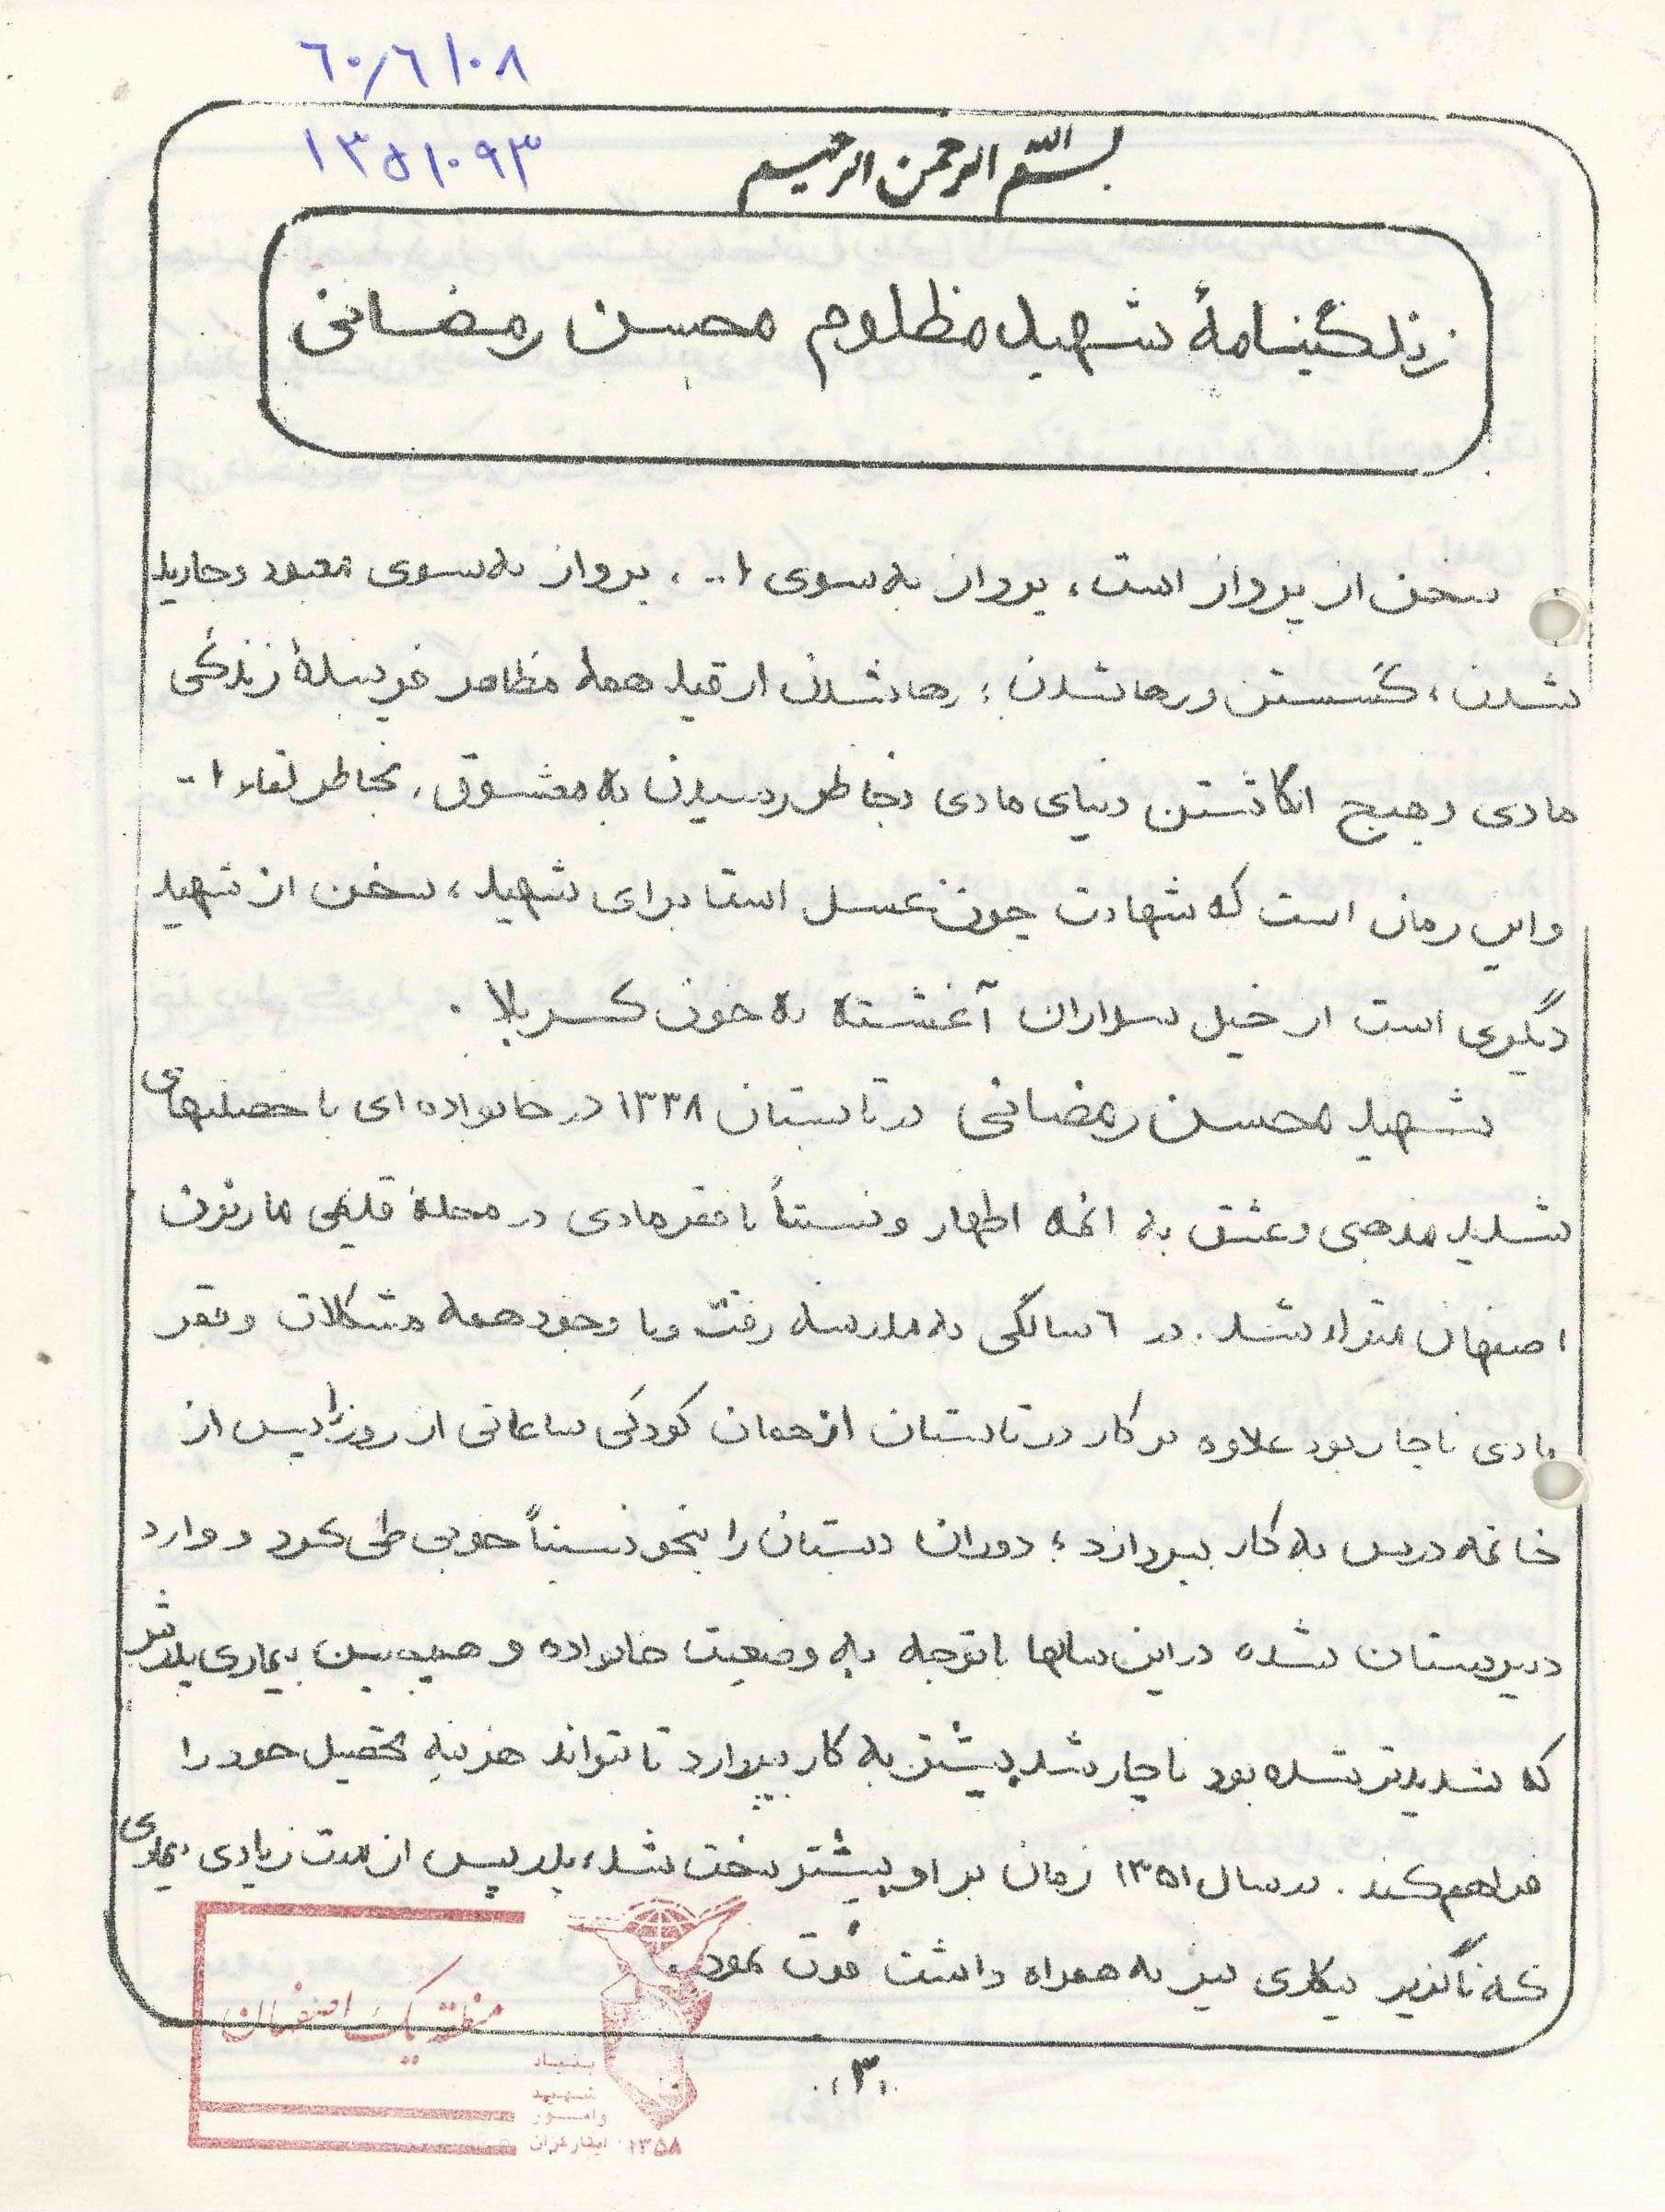 ۶۰/۶۱۰۸
۱۳۵۱۰۹۳
بسم الله الرحمن الرحیم
زندگینامهٔ شهید مظلوم محسن رمضانی
سخن از پرواز است، پرواز به سوی ا... ، پرواز به سوی معبود و جاوید
شدن، گسستن و رها شدن؛ رها شدن از قید همهٔ مظاهر فریبندهٔ زندگی
مادی و هیچ انگاشتن دنیای مادی بخاطر رسیدن به معشوق، بخاطر لقاء ا...
و این زمان است که شهادت چون عسل است برای شهید، سخن از شهید
دیگری است از خیل سواران آغشته به خون کربلا .
شهید محسن رمضانی در تابستان ۱۳۳۸ در خانواده ای با خصلتهای
شدید مذهبی و عشق به ائمه اطهار و نسبتاً با فقر مادی در محلهٔ قلیمی مارنون
اصفهان متولد شد. در ۶ سالگی به مدرسه رفت و با وجود همه مشکلات و فقر
مادی ناچار بود علاوه بر کار در تابستان از همان کودکی ساعاتی از روز را پس از
خاتمه درس به کار بپردازد؛ دوران دبستان را بنحو نسبتاً خوبی طی کرد و وارد
دبیرستان شده در این سالها با توجه به وضعیت خانواده و همچنین بیماری پدرش
که شدیدتر شده بود ناچار شد بیشتر به کار بپردازد تا بتواند هزینه تحصیل خود را
فراهم کند. در سال ۱۳۵۱ زمان بر او بیشتر سخت شد، پدر پس از مدت زیادی بیماری
که ناگزیر بیکاری نیز به همراه داشت فوت نمود.
۳
منطقه یک اصفهان
بنیاد
شهید
و امور
ایثارگران ۱۳۵۸